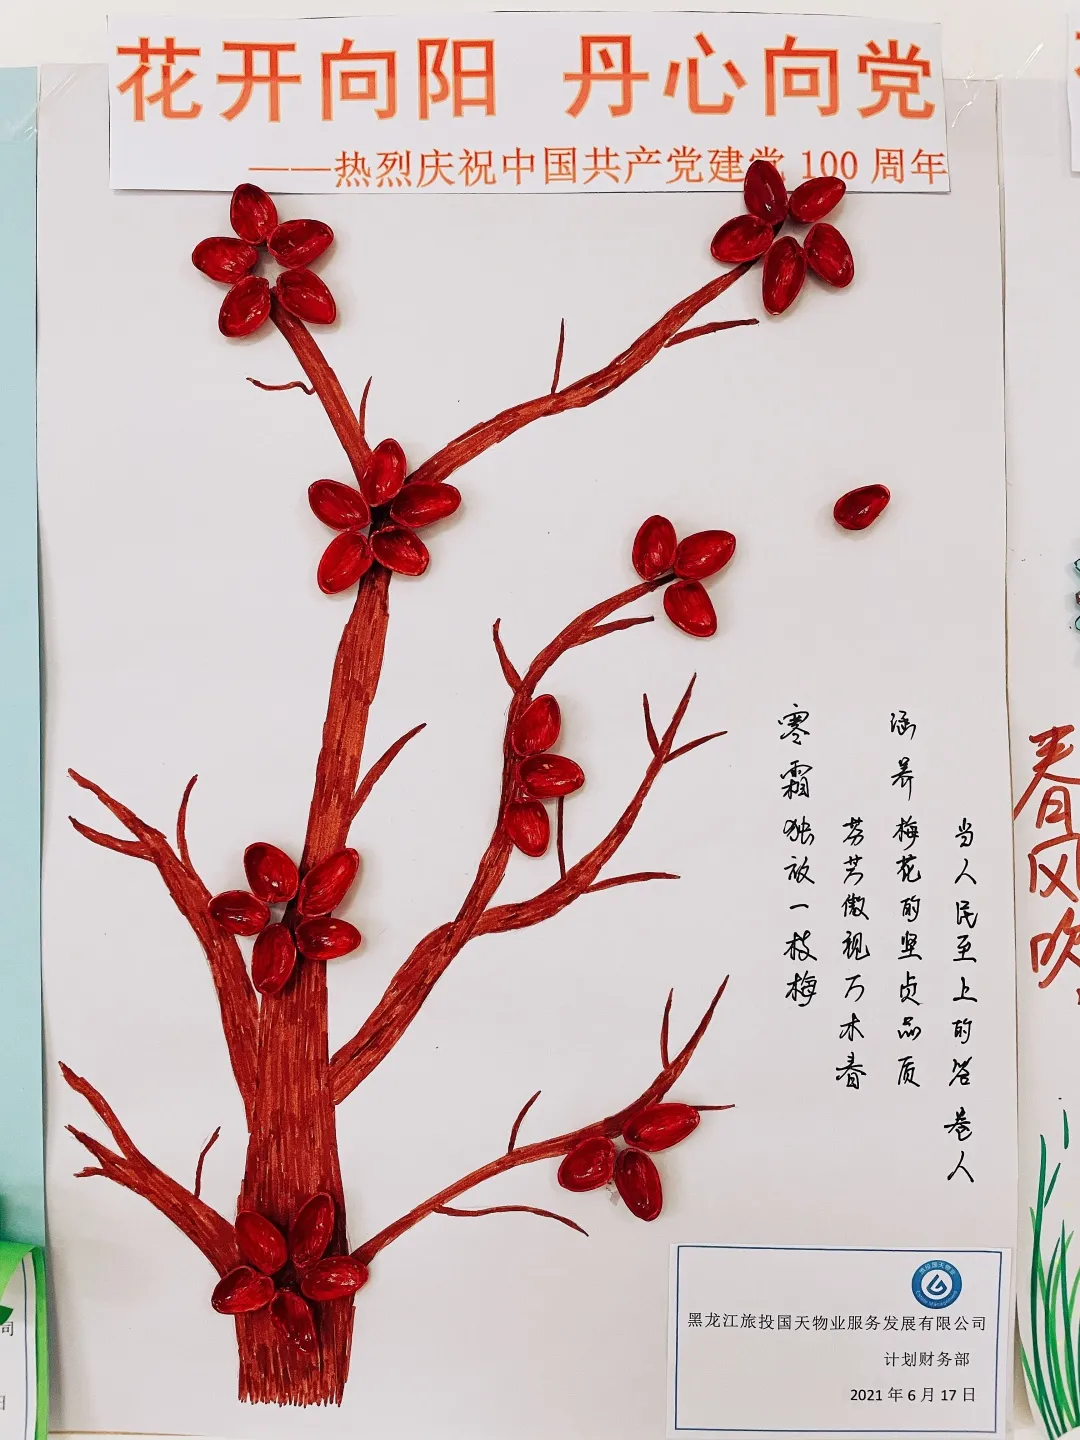 花开向阳 丹心向党
——热烈庆祝中国共产党建党 100 周年
寒霜独放一枝梅
芬芳傲视万木春
涵养梅花的坚贞品质
当人民至上的答卷人
春风吹
黑龙江旅投国天物业服务发展有限公司
计划财务部
2021 年 6 月 17 日
司